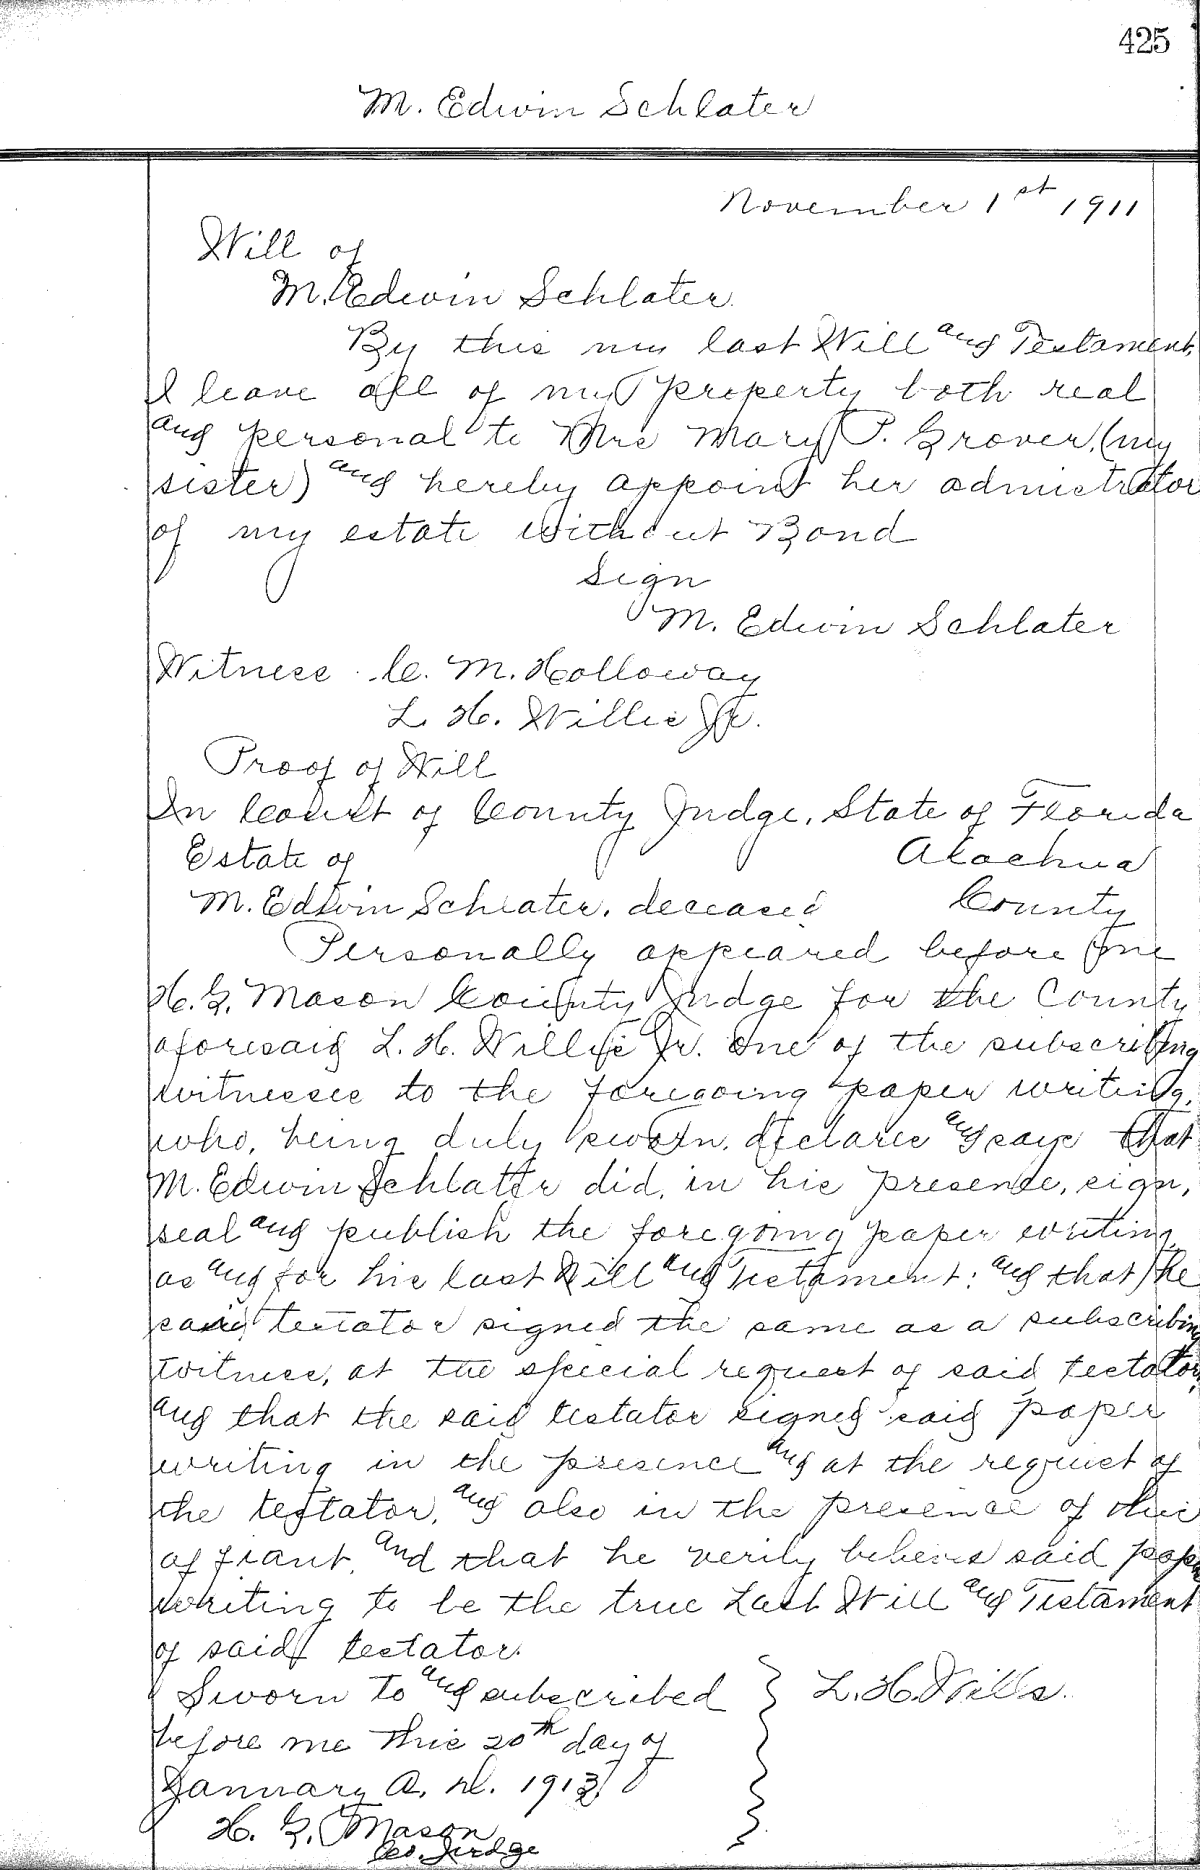 425
M. Edwin Schlater
November 1st 1911
Will of
M. Edwin Schlater.
By this my last Will and Testament,
I leave all of my property both real
and personal to Mrs Mary P. Grover, (my
sister) and hereby appoint her admistrator
of my estate without Bond
Sign
M. Edwin Schlater
Witness C. M. Holloway
L. H. Willis Jr.
Proof of Will
In Court of County Judge, State of Florida
Estate of Alachua
M. Edwin Schlater, deceased County
Personally appeared before me
H. G. Mason County Judge for the County
aforesaid L. H. Willis Jr. one of the subscribing
witnesses to the foregoing paper writing,
who, being duly sworn, declares and says that
M. Edwin Schlatter did, in his presence, sign,
seal and publish the foregoing paper writing
as and for his last Will and Testament; and that he
said testator signed the same as a subscribing
witness, at the special request of said testator,
and that the said testator signed said paper
writing in the presence and at the request of
the testator, and also in the presence of this
affiant, and that he verily believes said paper
writing to be the true Last Will and Testament
of said testator.
Sworn to and subscribed L. H. Wills.
before me this 20th day of
January A. D. 1913
H. G. Mason
Co. Judge